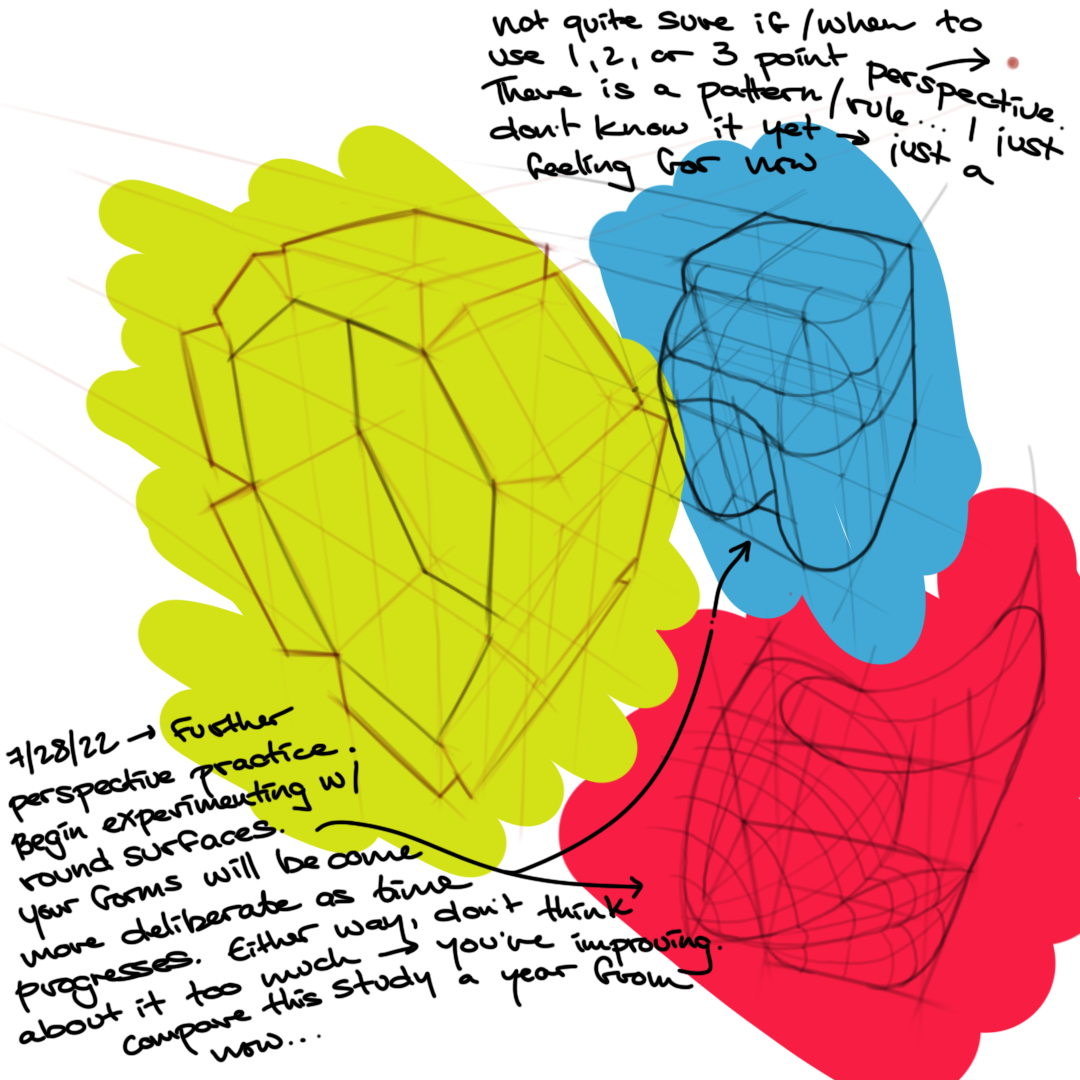 not quite sure if/when to
use 1, 2, or 3 point perspective.
There is a pattern/rule... I just
don't know it yet → just a
feeling for now
7/28/22 → Further
perspective practice.
Begin experimenting w/
round surfaces.
your forms will become
more deliberate as time
progresses. Either way, don't think
about it too much → you've improving.
compare this study a year from
now...